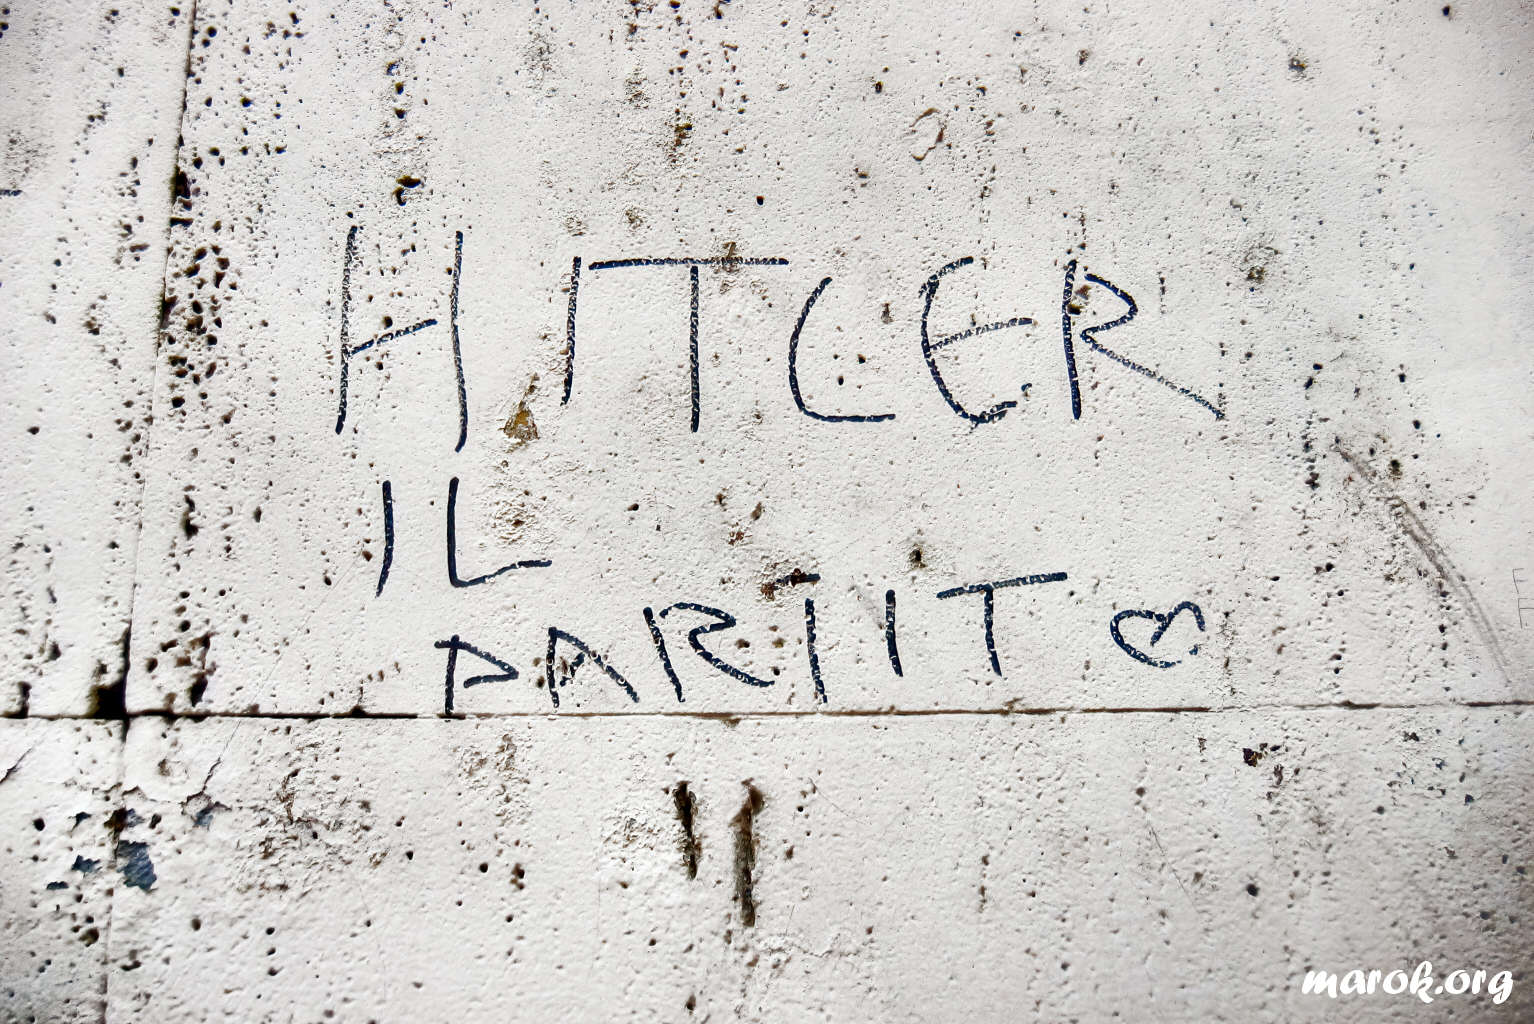 HITLER
IL
PARTITO
marok.org